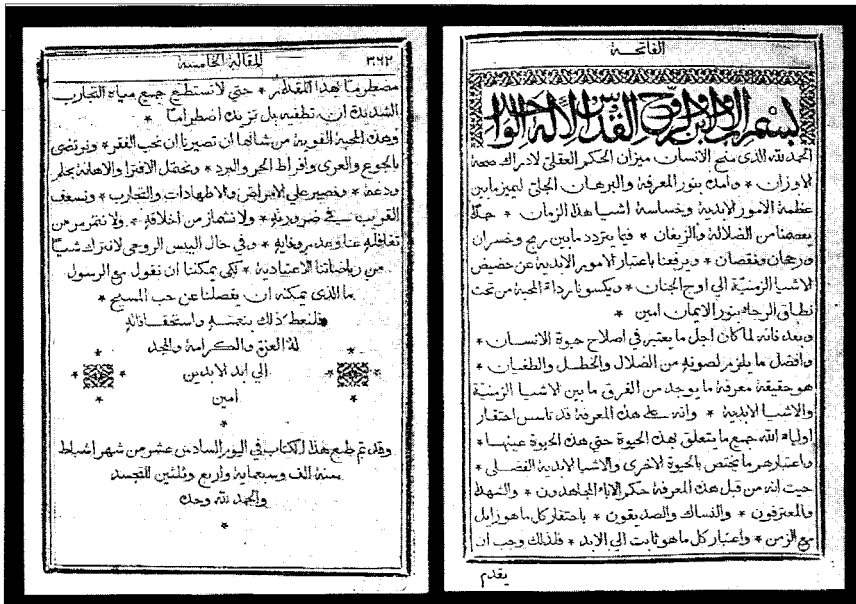 الفاتحة
بسم الاب والابن والروح القدس الاله الواحد
الحمد لله الذي منح الانسان ميزان الحكم العقلي لادراك صحة
الاوزان * وامده بنور المعرفة والبرهان الجلي ليميز مابين
عظمة الامور الابدية وخساسة اشيا هذا الزمان *
يعصمنا من الضلالة والزيغان * فيما يتردد مابين ربح وخسران
ورجحان ونقصان * ويرفعنا باعتبار الامور الابدية عن حضيض
الاشيا الزمنية الي اوج الجنان * ويكسونا رداء المحبة من تحت
نطاق الرجاء بنور الايمان امين *
وبعد فانه لما كان اجل ما يعتبر في اصلاح حيوة الانسان *
وافضل ما يلزم لصونه من الضلال والخطل والطغيان *
هو حقيقة معرفة ما يوجد من الفرق ما بين الاشيا الزمنية
والاشيا الابدية * وانه علي هذه المعرفة قد تاسس احتقار
اولياء الله جميع ما يتعلق بهذه الحيوة حتي هذه الحيوة عينها *
واعتبارهم ما يختص بالحيوة الاخرى والاشيا الابدية الفضلي *
حيث انه من قبل هذه المعرفة حكم الاباء المجاهدون * والشهدا
والمعترفون * والنساك والصديقون * باحتقار كل ما هو زايل
مع الزمن * واعتبار كل ما هو ثابت الي الابد * فلذلك وجب ان
يقدم
المقالة الخامسة ٣٦٢
مضطرمًا بهذا المقدار * حتي لا تستطيع جميع مياه التجارب
الشديدة ان تطفيه بل تزيده اضطرامًا *
وهذه المحبة القوية من شانها ان تصيرنا ان نحب الفقر * ونرتضي
بالجوع والعرى وافراط الحر والبرد * ونحتمل الافترا والاهانة بحلم
ودعة * ونصبر علي الامراض والاظطهادات والتجارب * ونسعف
القريب في ضرورته * ولا نشماز من اخلاقه * ولا نتمرمر من
تغافله عنا وعدم وفايه * وفي حال اليبس الروحي لا نترك شيًا
من رياضاتنا الاعتيادية * لكي يمكننا ان نقول مع الرسول
ما الذى يمكنه ان يفصلنا عن حب المسيح *
فلنعط ذلك بنعمته واستحقاقاته
له العزة والكرامة والمجد
الي ابد الابدين
امين
وقد تم طبع هذا الكتاب في اليوم السادس عشر من شهر اشباط
سنة الف وسبعماية واربع وثلثين للتجسد
والحمد لله وحده